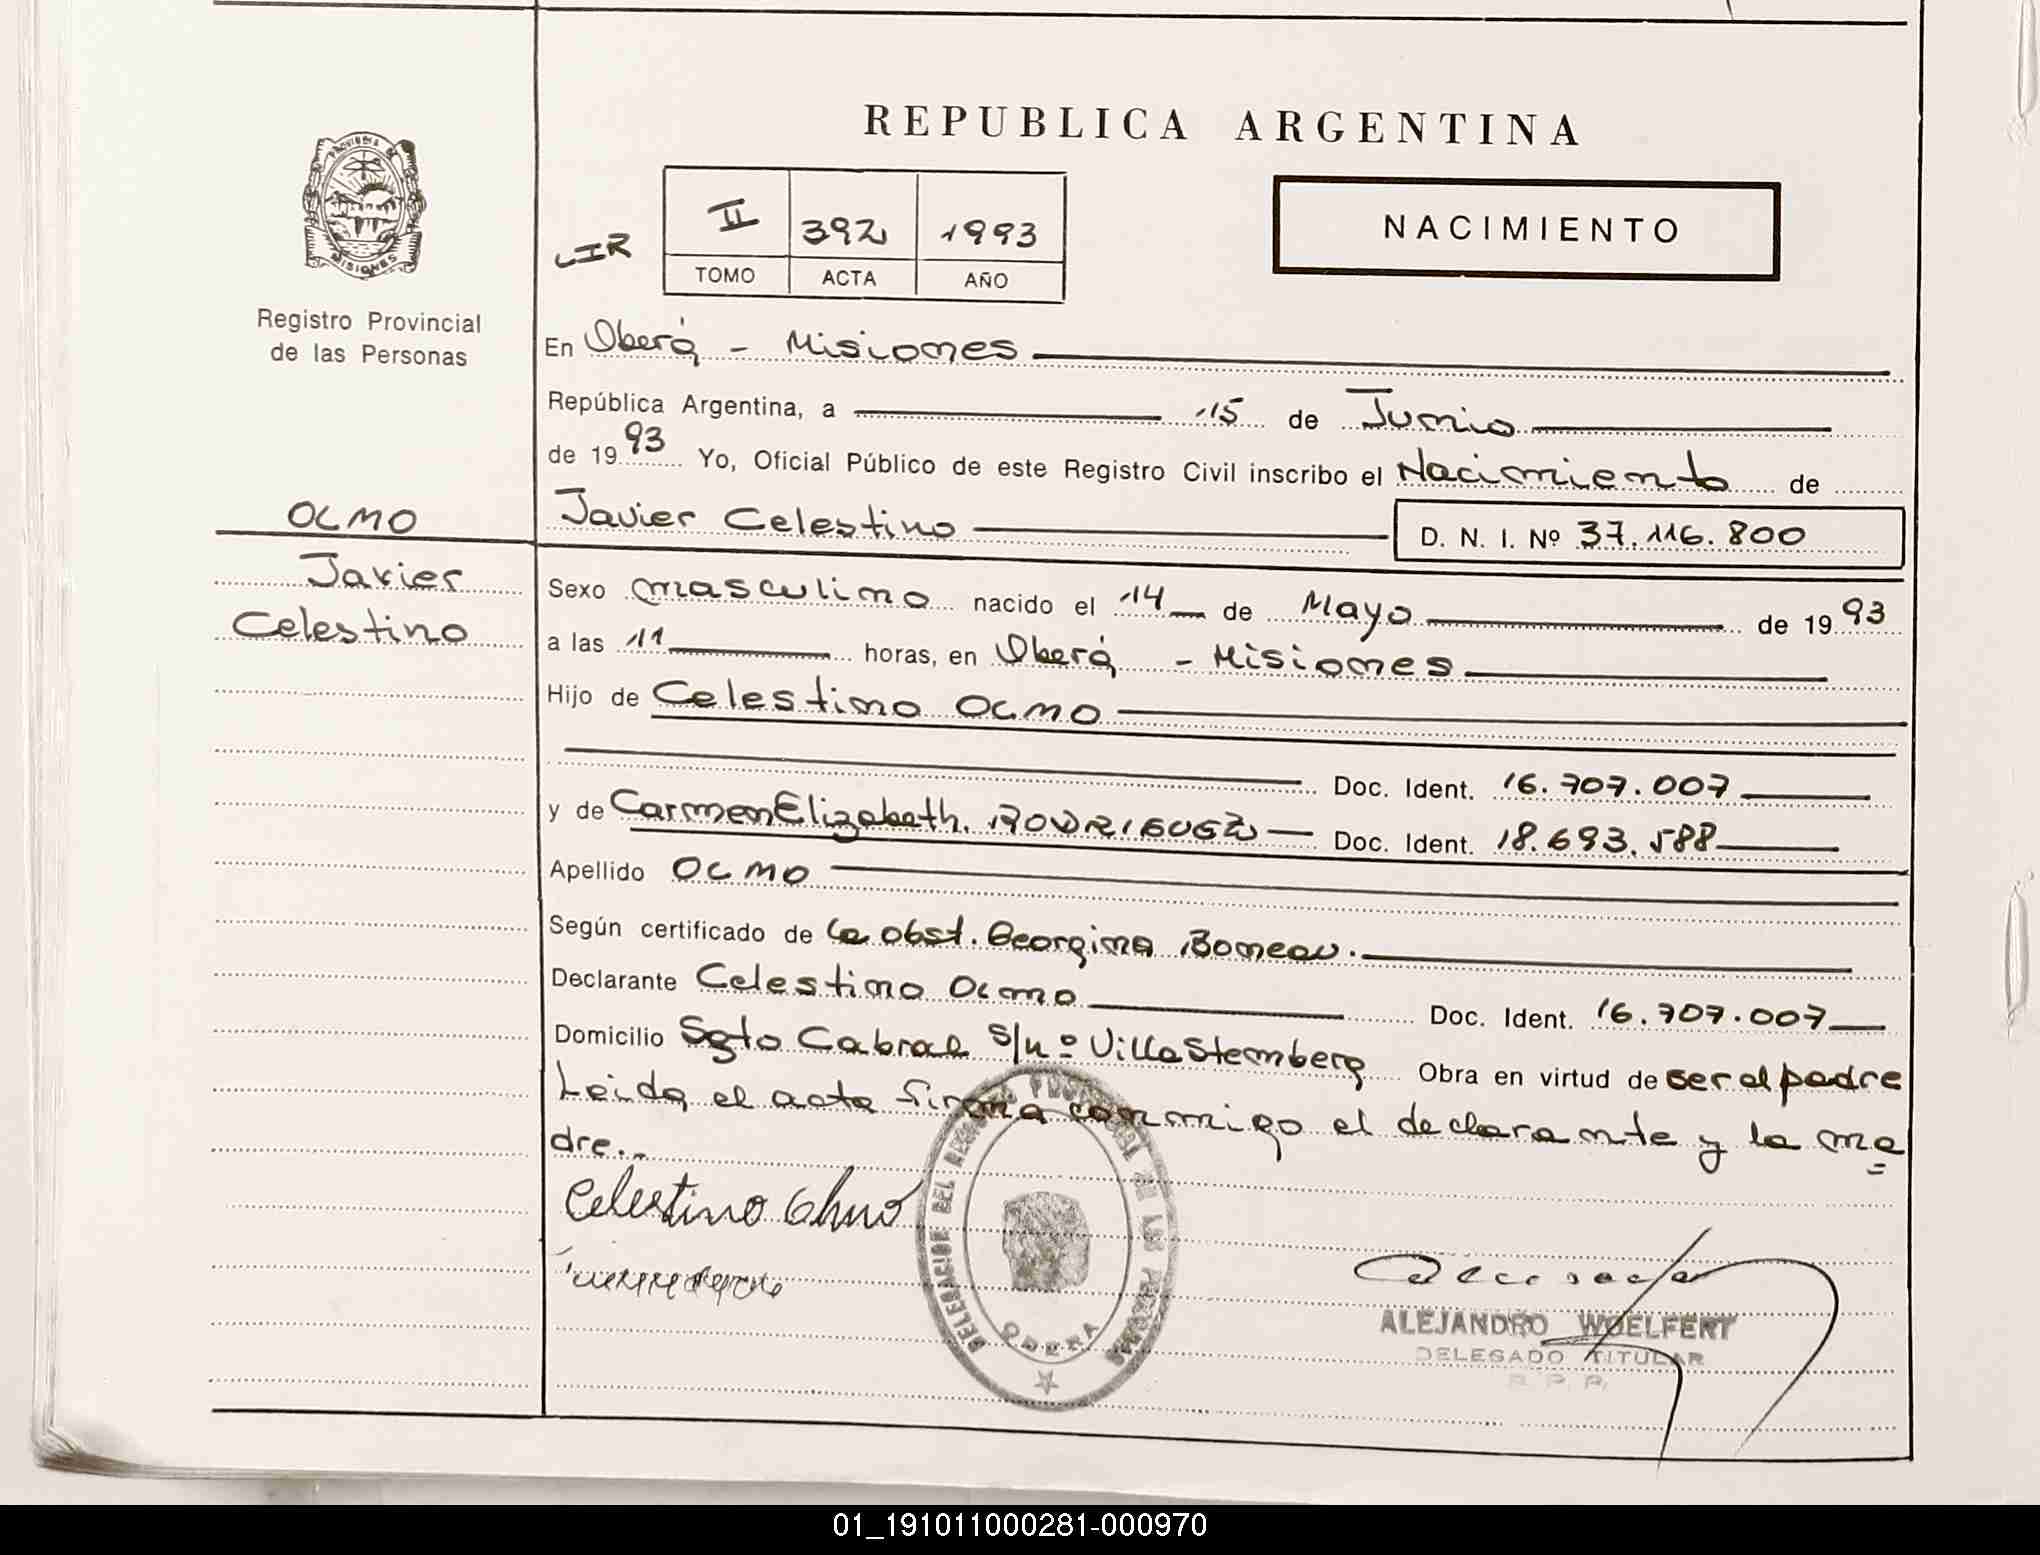 REPUBLICA ARGENTINA
PROVINCIA DE
MISIONES
Registro Provincial
de las Personas
LIR
II 392 1993
TOMO ACTA AÑO
NACIMIENTO
En Oberá - Misiones
República Argentina, a 15 de Junio
de 1993 Yo, Oficial Público de este Registro Civil inscribo el Nacimiento de
Javier Celestino D. N. I. Nº 37.116.800
OLMO
Javier
Celestino
Sexo masculino nacido el 14 de Mayo de 1993
a las 11 horas, en Oberá - Misiones
Hijo de Celestino OLMO
Doc. Ident. 16.707.007
y de Carmen Elizabeth. RODRIGUEZ Doc. Ident. 18.693.588
Apellido OLMO
Según certificado de la obst. Georgina Boneau.
Declarante Celestino Olmo Doc. Ident. 16.707.007
Domicilio Sgto Cabral S/Nº Villa Stemberg Obra en virtud de ser el padre
Leida el acta firma conmigo el declarante y la ma=
dre.-
Celestino Olmo
DELEGACION DEL REGISTRO PROVINCIAL DE LAS PERSONAS
OBERA
ALEJANDRO WOELFERT
DELEGADO TITULAR
R. P. P.
01_191011000281-000970